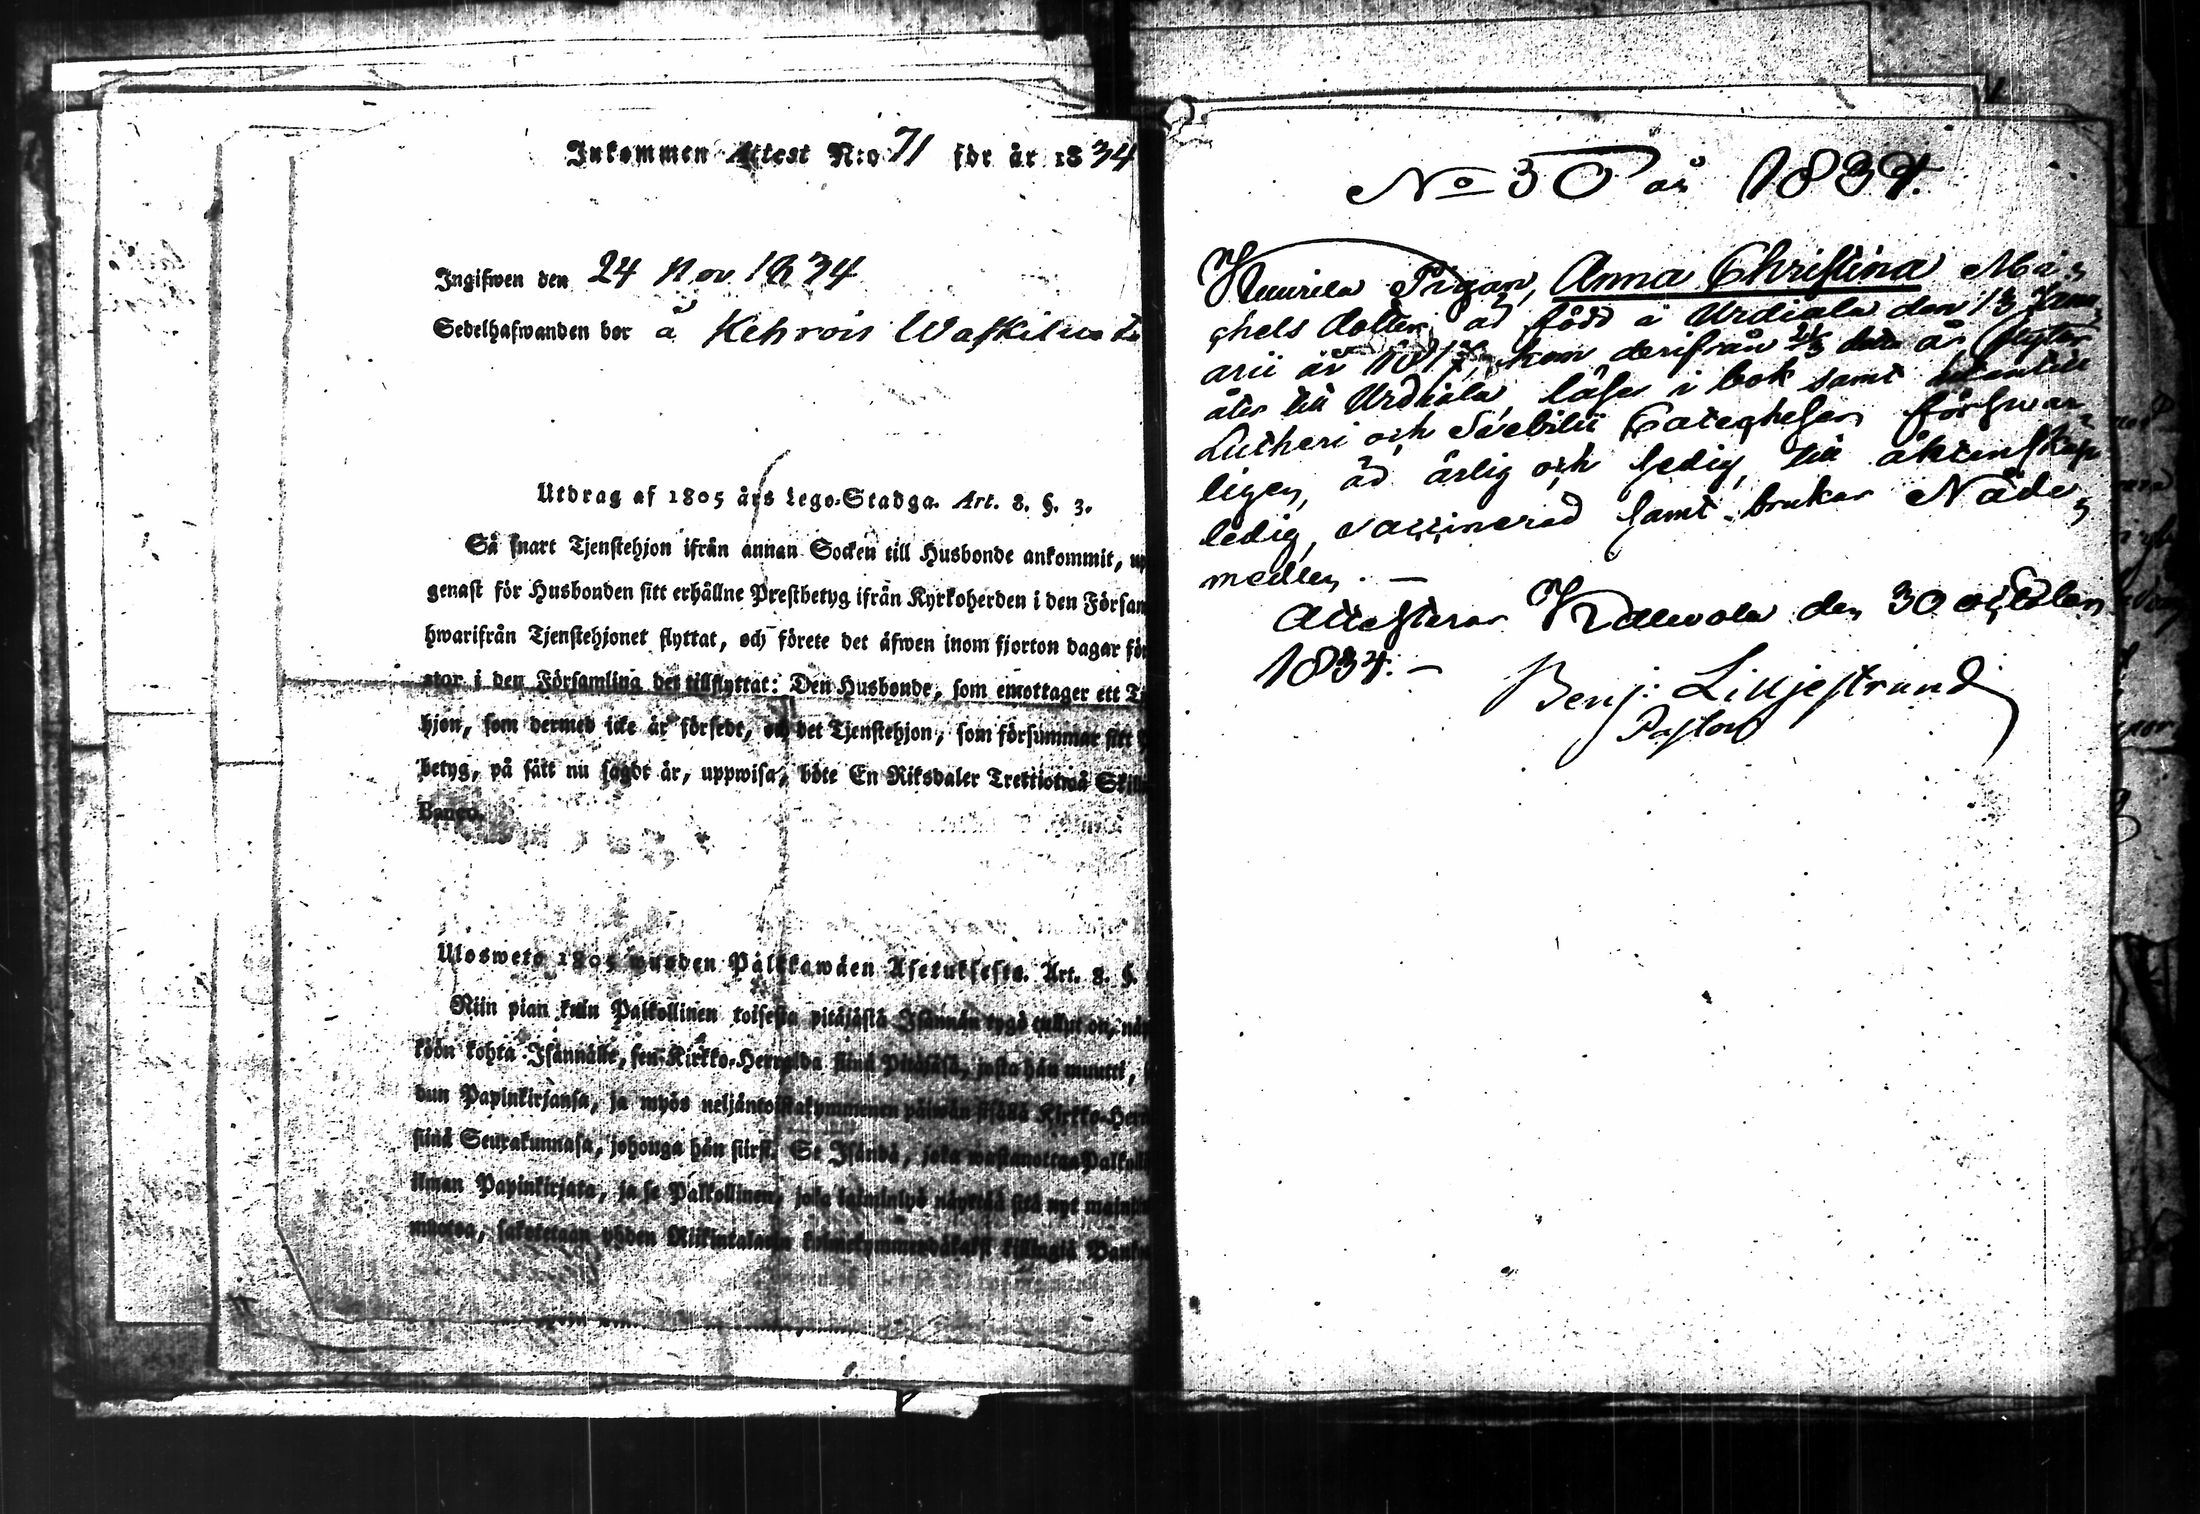 Inkommen Attest N:o 71 för år 1834
Ingifwen den 24 Nov 1834
Sedelhafwanden bor å Kehrois
Utdrag af 1805 års Lego-Stadga. Art. 8. §. 3.
Så snart Tjenstehjon ifrån annan Socken till Husbonde ankommit,
genast för Husbonden sitt erhållne Prestbetyg ifrån Kyrkoherden i den Försam
hwarifrån Tjenstehjonet flyttat, och förete det äfwen inom fjorton dagar för
stor i den Församling det tillflyttat: Den Husbonde, som emottager ett Tj
hjon, som dermed icke är försedt, och det Tjenstehjon, som försummar sitt
betyg, på sätt nu sagdt är, uppwisa, böte En Riksdaler Trettiotwå Skill
Banco.
Ulosweto 1805 wuoden Palkkawäen Asetuksesta. Art. 8. §.
Niin pian kuin Palkollinen toisesta pitäjästä Isännän tygö tullut on,
köön kohta Isännälle, sen Kirkko-Herralda siinä Pitäjäsä, josta hän muutti,
dun Papinkirjansa, ja myös neljäntoistakymmenen päiwän sisällä Kirkko-Herr
siinä Seurakunnasa, johonga hän siirsi. Se Isändä, joka wastanottaa Palkolli
ilman Papinkirjata, ja se Palkollinen, joka laiminlyö näyttää sitä nyt mainit
muotoa, sakotetaan yhden Riikintalarin kolmekymmendäkaksi killingiä Banko
No 30 år 1834.
Pigan, Anna Christina Mi-
chels dotter, är född i Urdiala den 13 Janu-
arii år kom derifrån år flyttar
åter till Urdiala, läser i bok samt utantill
Lutheri och Svebilii Catechesen försvar-
ligen, är ärlig och sedig, till äktenskap
ledig, vaccinerad samt brukar Nåde-
medlen. —
Attesteras Kalvola den 30 october
1834. —
Benj: Liljestrand
Pastor